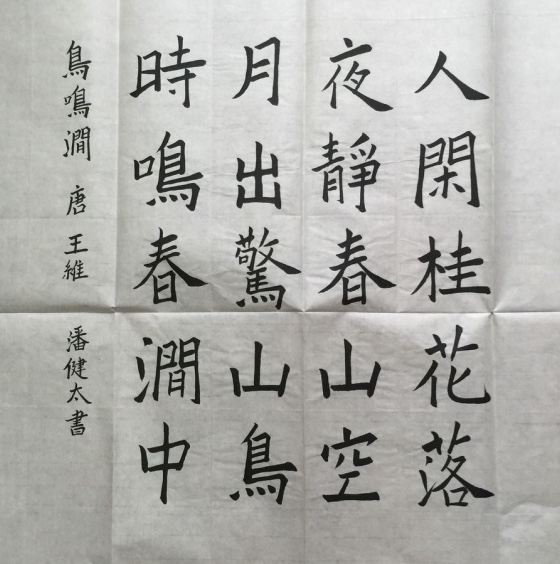 人閑桂花落
夜靜春山空
月出驚山鳥
時鳴春澗中
鳥鳴澗 唐 王維 潘健太書